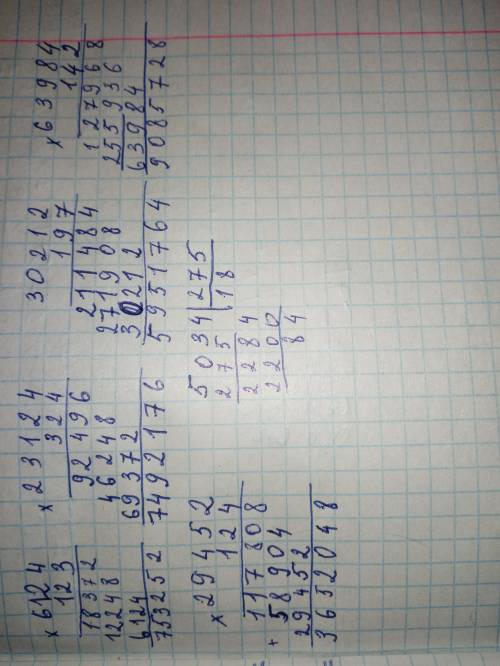 × 6124
123
18372
12248
6124
753252
× 23124
324
92496
46248
69372
7492176
30212
197
211484
271908
30212
5951764
× 63984
142
127968
255936
63984
9085728
× 29452
124
117808
+ 58904
29452
3652048
5034 | 275
275 | 18
2284
2200
84